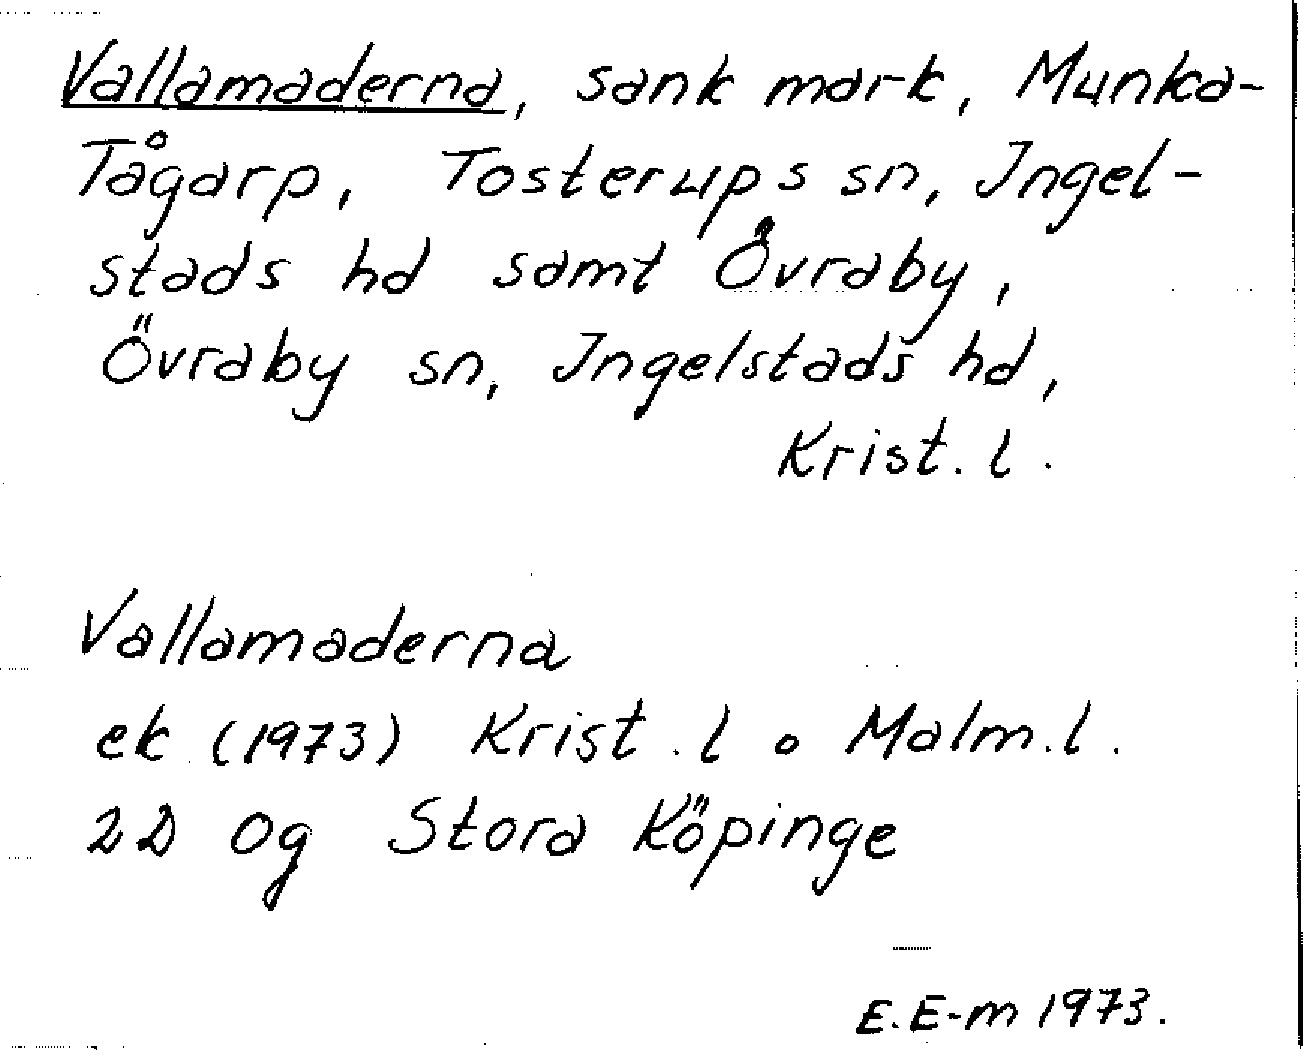 Vallamaderna, sank mark, Munka-
Tågarp, Tosterups sn, Ingel-
stads hd samt Övraby,
Övraby sn, Ingelstads hd,
Krist. l.
Vallamaderna
ek (1973) Krist. l o Malm. l.
2D 0g Stora Köpinge
E. E-m 1973.